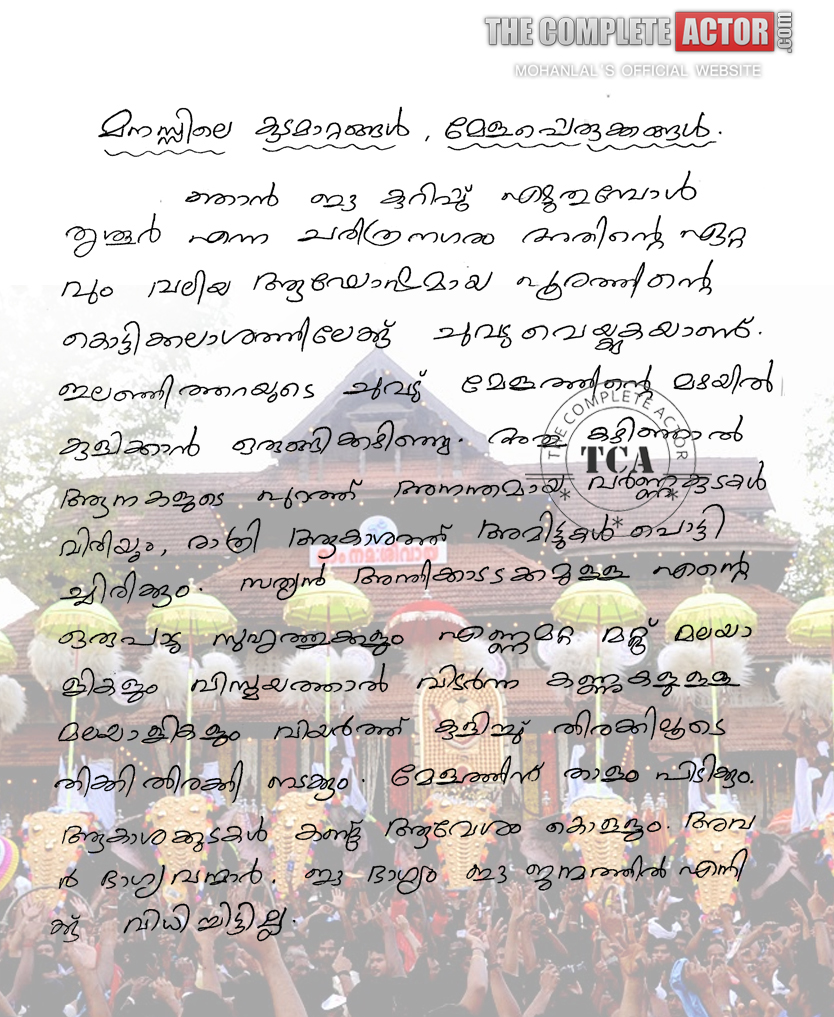 THE COMPLETE ACTOR .com
MOHANLAL'S OFFICIAL WEBSITE
മനസ്സിലെ കുടമാറ്റങ്ങൾ, മേളപ്പെരുക്കങ്ങൾ.
ഞാൻ ഈ കുറിപ്പ് എഴുതുമ്പോൾ
തൃശൂർ എന്ന ചരിത്രനഗരം അതിന്റെ ഏറ്റ
വും വലിയ ആഘോഷമായ പൂരത്തിന്റെ
കൊട്ടിക്കലാശത്തിലേക്ക് ചുവടു വെയ്ക്കുകയാണ്.
ഇലഞ്ഞിത്തറയുടെ ചുവട് മേളത്തിന്റെ മഴയിൽ
കുളിക്കാൻ ഒരുങ്ങിക്കഴിഞ്ഞു. അതു കഴിഞ്ഞാൽ
ആനകളുടെ പുറത്ത് അനന്തമായ വർണ്ണക്കുടകൾ
വിരിയും, രാത്രി ആകാശത്ത് അമിട്ടുകൾ പൊട്ടി
ച്ചിരിക്കും. സത്യൻ അന്തിക്കാടടക്കമുള്ള എന്റെ
ഒരുപാടു സുഹൃത്തുക്കളും എണ്ണമറ്റ മറ്റ് മലയാ
ളികളും വിസ്മയത്താൽ വിടർന്ന കണ്ണുകളുള്ള
മലയാളികളും വിയർത്ത് കുളിച്ച് തിരക്കിലൂടെ
തിക്കി തിരക്കി നടക്കും. മേളത്തിന് താളം പിടിക്കും.
ആകാശക്കുടകൾ കണ്ട് ആവേശം കൊള്ളും. അവ
ർ ഭാഗ്യവന്മാർ. ഈ ഭാഗ്യം ഈ ജന്മത്തിൽ എനി
ക്ക് വിധിച്ചിട്ടില്ല.
THE COMPLETE ACTOR
TCA
ഓം നമ:ശിവായ